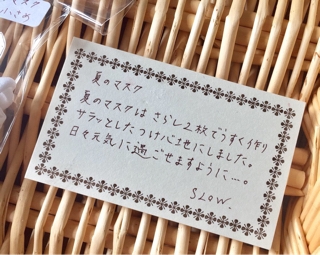 マスク
夏のマスク
夏のマスクは さらし2枚でうすく作り
サラッとした つけ心地にしました。
日々元気に過ごせますように…。
SLOW.